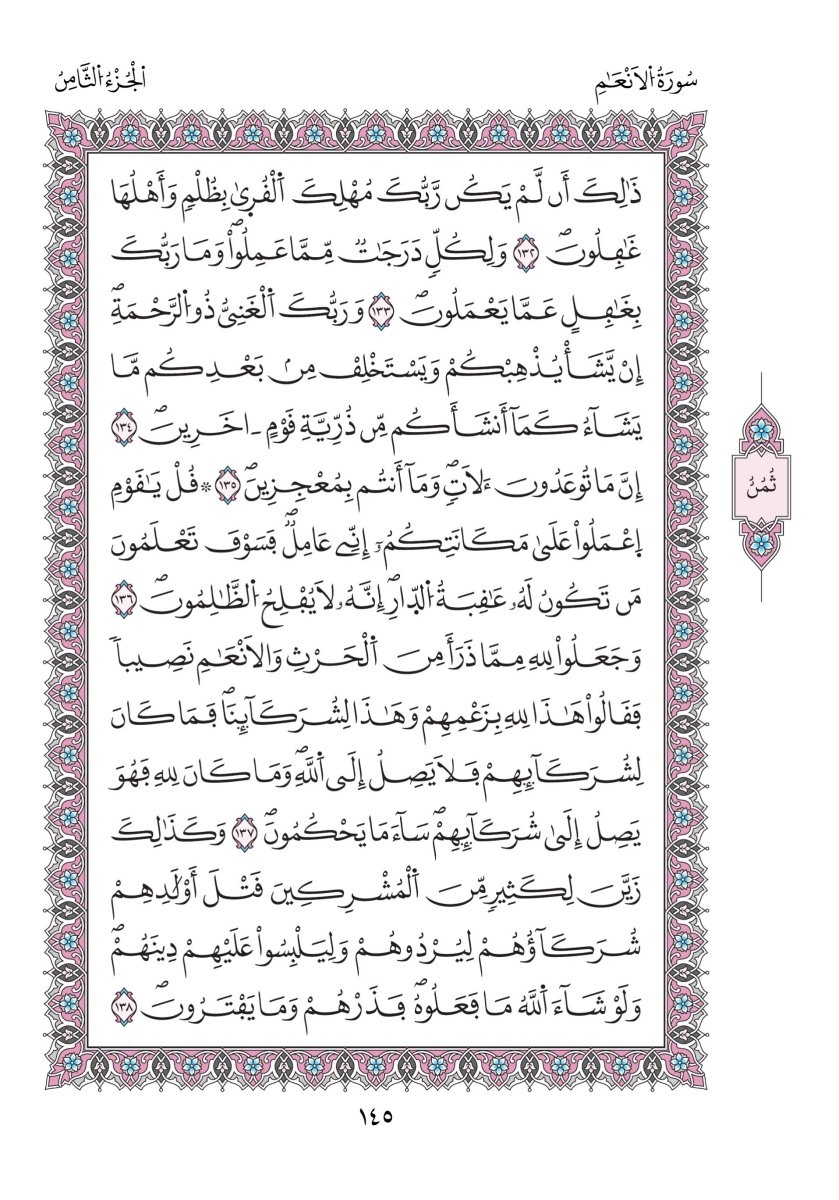 سُورَةُ الْأَنْعَامِ
الْجُزْءُ الثَّامِنُ
ذَٰلِكَ أَن لَّمْ يَكُن رَّبُّكَ مُهْلِكَ اَ۬لْقُر۪يٰ بِظُلْمٖ وَأَهْلُهَا
غَٰفِلُونَۖ ١٣٢ وَلِكُلّٖ دَرَجَٰتٞ مِّمَّا عَمِلُواْۖ وَمَا رَبُّكَ
بِغَٰفِلٍ عَمَّا يَعْمَلُونَۖ ١٣٣ وَرَبُّكَ اَ۬لْغَنِيُّ ذُو اُ۬لرَّحْمَةِۖ
إِنْ يَّشَأْ يُذْهِبْكُمْ وَيَسْتَخْلِفْ مِنۢ بَعْدِكُم مَّا
يَشَآءُ كَمَآ أَنشَأَكُم مِّن ذُرِّيَّةِ قَوْمٍ اٰخَرِينَۖ ١٣٤
إِنَّ مَا تُوعَدُونَ ءَلَاتٖۖ وَمَآ أَنتُم بِمُعْجِزِينَۖ ١٣٥ * قُلْ يَٰقَوْمِ
اِ۪عْمَلُواْ عَلَىٰ مَكَانَتِكُمُۥٓ إِنِّے عَامِلٞۖ فَسَوْفَ تَعْلَمُونَ
مَن تَكُونُ لَهُۥ عَٰقِبَةُ اُ۬لدّ۪ارِۖ إِنَّهُۥ لَا يُفْلِحُ اُ۬لظَّٰلِمُونَۖ ١٣٦
وَجَعَلُواْ لِلهِ مِمَّا ذَرَأَ مِنَ اَ۬لْحَرْثِ وَالَانْعَٰمِ نَصِيباٗ
فَقَالُواْ هَٰذَا لِلهِ بِزَعْمِهِمْ وَهَٰذَا لِشُرَكَآئِنَاۖ فَمَا كَانَ
لِشُرَكَآئِهِمْ فَلَا يَصِلُ إِلَى اَ۬للَّهِۖ وَمَا كَانَ لِلهِ فَهُوَ
يَصِلُ إِلَىٰ شُرَكَآئِهِمْۖ سَآءَ مَا يَحْكُمُونَۖ ١٣٧ وَكَذَٰلِكَ
زَيَّنَ لِكَثِيرٖ مِّنَ اَ۬لْمُشْرِكِينَ قَتْلَ أَوْلَٰدِهِمْ
شُرَكَآؤُهُمْ لِيُرْدُوهُمْ وَلِيَلْبِسُواْ عَلَيْهِمْ دِينَهُمْۖ
وَلَوْ شَآءَ اَ۬للَّهُ مَا فَعَلُوهُۖ فَذَرْهُمْ وَمَا يَفْتَرُونَۖ ١٣٨
ثُمُنُ
١٤٥